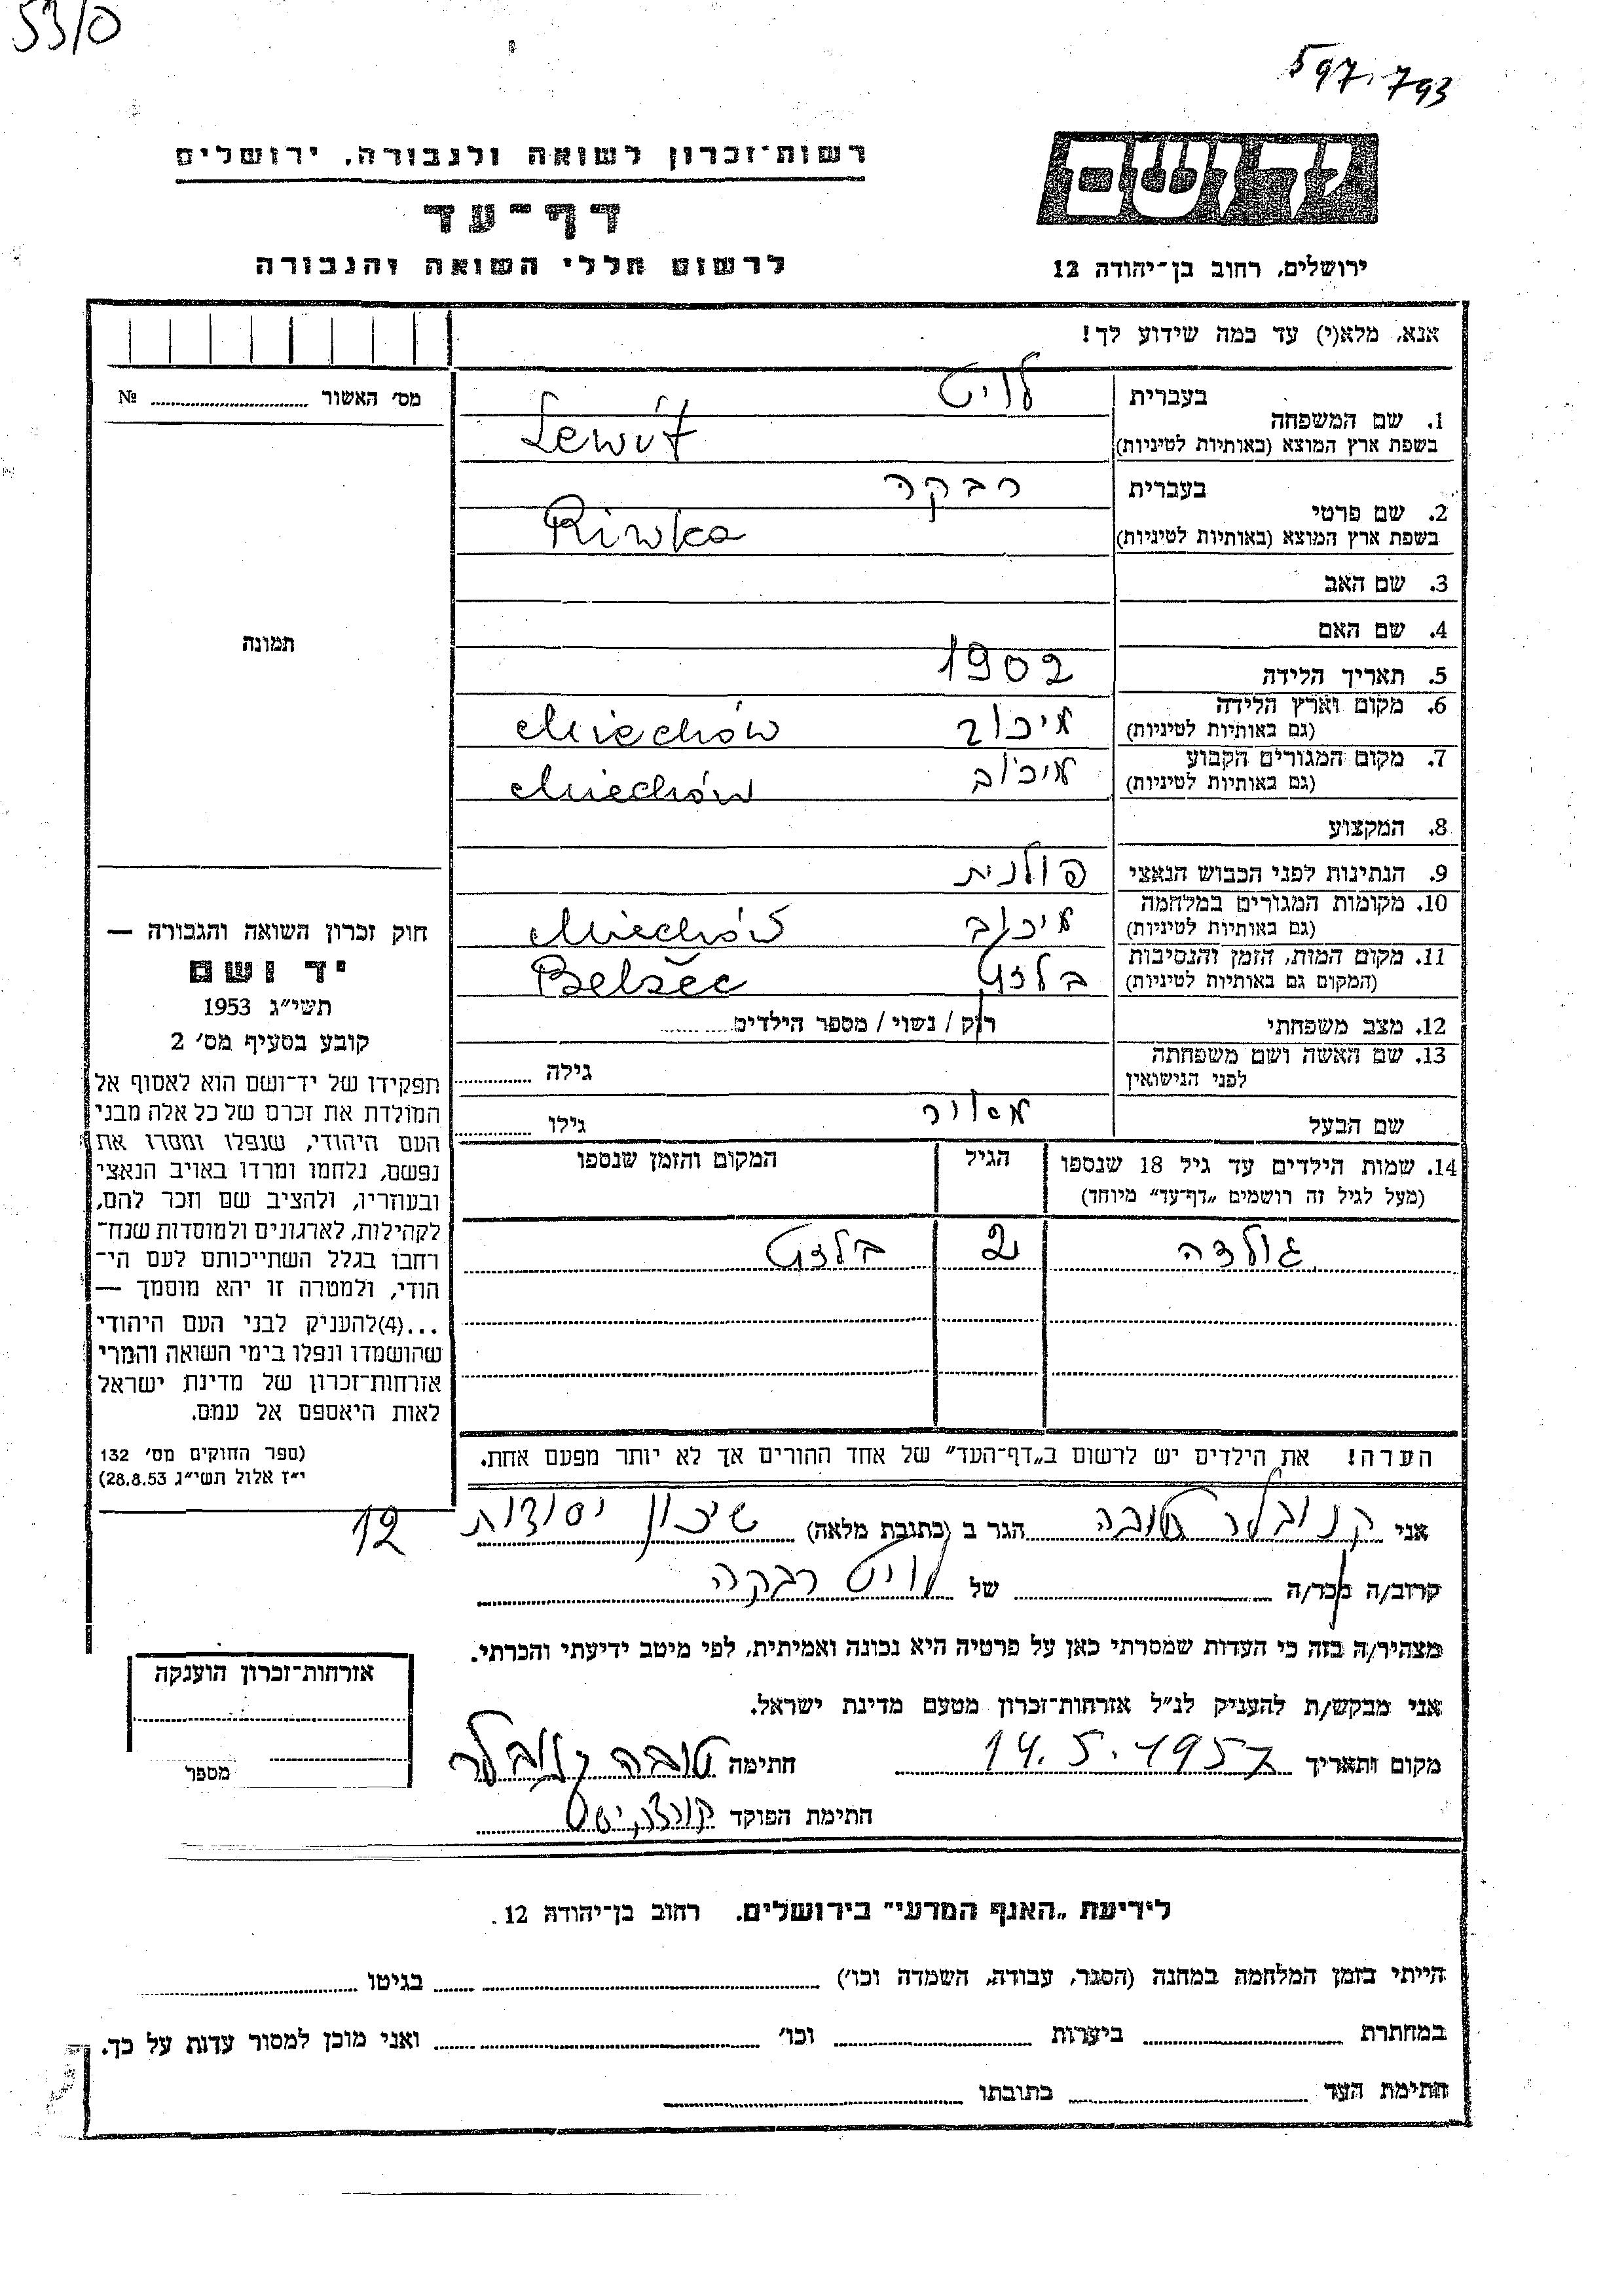 53/0
597.793
רשות־זכרון לשואה ולגבורה, ירושלים
דף־עד
לרשום חללי השואה והגבורה
ידושם
ירושלים, רחוב בן־יהודה 12
אנא, מלא(י) עד כמה שידוע לך!
מס׳ האשור № 
תמונה
חוק זכרון השואה והגבורה —
יד ושם
תשי״ג 1953
קובע בסעיף מס׳ 2
תפקידו של יד־ושם הוא לאסוף אל
המולדת את זכרם של כל אלה מבני
העם היהודי, שנפלו ומסרו את
נפשם, נלחמו ומרדו באויב הנאצי
ובעוזריו, ולהציב שם וזכר להם,
לקהילות, לארגונים ולמוסדות שנח־
רחבו בגלל השתייכותם לעם הי־
הודי, ולמטרה זו יהא מוסמך —
...(4)להעניק לבני העם היהודי
שהושמדו ונפלו בימי השואה והמרי
אזרחות־זכרון של מדינת ישראל
לאות היאספם אל עמם.
(ספר החוקים מס׳ 132
י״ז אלול תשי״ג 28.8.53)
בעברית לויט
1. שם המשפחה
בשפת ארץ המוצא (באותיות לטיניות) Lewit
בעברית רבקה
2. שם פרטי
בשפת ארץ המוצא (באותיות לטיניות) Riwka
3. שם האב
4. שם האם
5. תאריך הלידה 1902
6. מקום וארץ הלידה
(גם באותיות לטיניות) מיכוב Miechów
7. מקום המגורים הקבוע
(גם באותיות לטיניות) מיכוב Miechów
8. המקצוע
9. הנתינות לפני הכבוש הנאצי פולנית
10. מקומות המגורים במלחמה
(גם באותיות לטיניות) מיכוב Miechów
11. מקום המות, הזמן והנסיבות
(המקום גם באותיות לטיניות) בלזץ Belsec
12. מצב משפחתי רוק / נשוי / מספר הילדים
13. שם האשה ושם משפחתה
לפני הנישואין גילה
שם הבעל מאיר גילו
14. שמות הילדים עד גיל 18 שנספו הגיל המקום והזמן שנספו
(מעל לגיל זה רושמים „דף־עד״ מיוחד)
גולדה 2 בלזץ
הערה! את הילדים יש לרשום ב„דף־העד״ של אחד ההורים אך לא יותר מפעם אחת.
אני קנובלר טובה הגר ב (כתובת מלאה) שיכון יסודות 12
קרוב/ה מכר/ה של לויט רבקה
מצהיר/ה בזה כי העדות שמסרתי כאן על פרטיה היא נכונה ואמיתית, לפי מיטב ידיעתי והכרתי.
אני מבקש/ת להעניק לנ״ל אזרחות־זכרון מטעם מדינת ישראל.
מקום ותאריך 14.5.1957 חתימה טובה קנובלר
חתימת הפוקד
אזרחות־זכרון הוענקה
מספר
לידיעת „האגף המדעי״ בירושלים. רחוב בן־יהודה 12.
הייתי בזמן המלחמה במחנה (הסגר, עבודה, השמדה וכו׳) בגיטו
במחתרת ביערות וכו׳ ואני מוכן למסור עדות על כך.
חתימת העד כתובתו